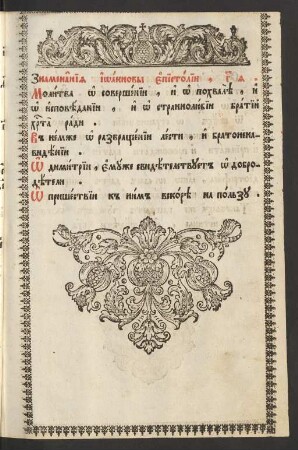 Знаменанїѧ їѡа́нновы є҆пїсто́лїи , г҃ѧ .
Моли́тва ѡ҆ соверше́нїи , и҆ ѡ҆ похвалѣ̀ , и҆
ѡ҆ и҆сповѣ́данїи , и҆ ѡ҆ странномо́бїи бра́тїи
хр҇та̀ ра́ди .
В не́мже ѡ҆ развраще́нїи ле́сти , и҆ братонена-
ви́дѣнїи .
Ѡ҆ дими́трїи , є҆мꙋ́же свидѣ́тельствꙋетъ ѡ҆ добро-
дѣ́тели .
Ѡ҆ прише́ствїи къ ни̑мъ вско́рѣ на по́льзꙋ .